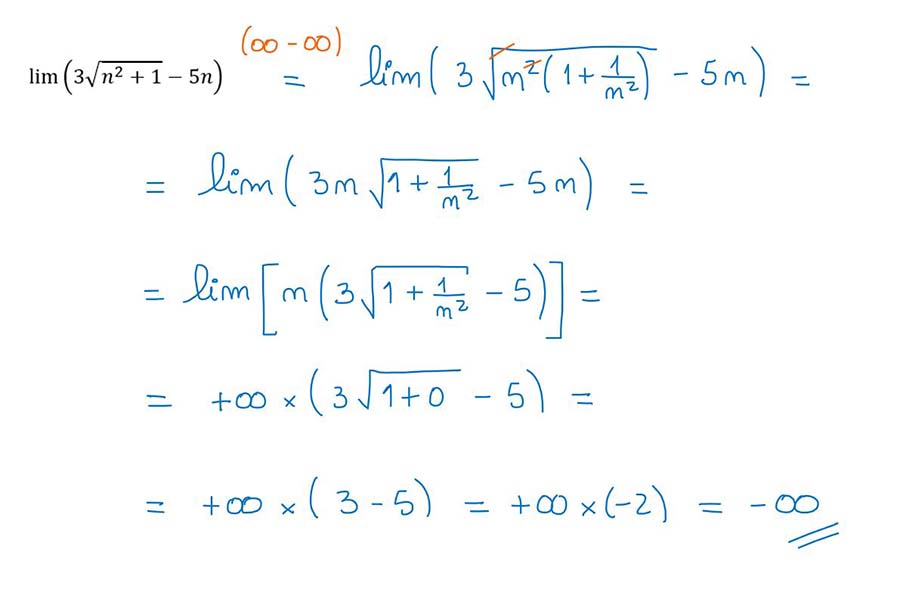 lim(3√(n² + 1) − 5n) (∞ - ∞) = lim(3√(n²(1 + 1/n²)) - 5n) =
= lim(3n√(1 + 1/n²) - 5n) =
= lim[n(3√(1 + 1/n²) - 5)] =
= +∞ × (3√(1+0) - 5) =
= +∞ × (3 - 5) = +∞ × (-2) = -∞